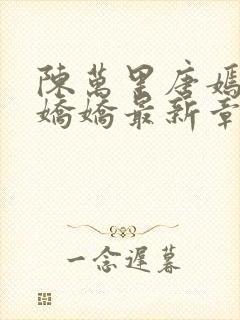 陳萬里唐嫣
嬌嬌最新章
一念遲暮